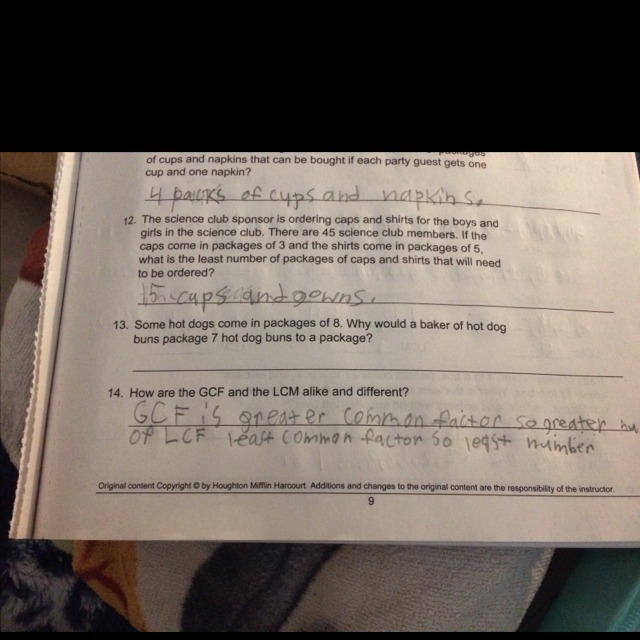 packages
of cups and napkins that can be bought if each party guest gets one
cup and one napkin?
4 packs of cups and napkins.
12. The science club sponsor is ordering caps and shirts for the boys and
girls in the science club. There are 45 science club members. If the
caps come in packages of 3 and the shirts come in packages of 5,
what is the least number of packages of caps and shirts that will need
to be ordered?
15 cups and gewns.
13. Some hot dogs come in packages of 8. Why would a baker of hot dog
buns package 7 hot dog buns to a package?
14. How are the GCF and the LCM alike and different?
GCF is greater common factor so greater nu
of LCF least common factor so leqst number
Original content Copyright © by Houghton Mifflin Harcourt. Additions and changes to the original content are the responsibility of the instructor.
9